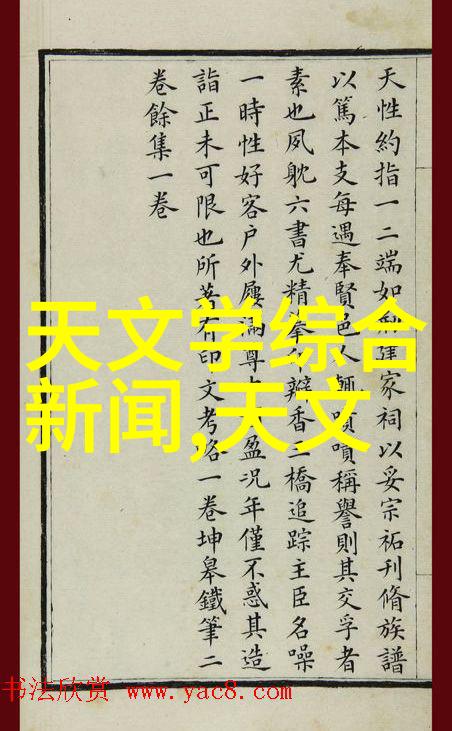 天性約指一二端如建家祠以妥宗祏刊脩族譜
以篤本支每遇奉賢邑人輒嘖嘖稱譽則其交孚者
素也夙躭六書尤精香三橋追踪主臣名噪
一時性好客户外屨滿尊盈況年僅不惑其造
詣正未可限也所著有印文考略一卷坤皋鐵筆二
卷餘集一卷
天文学综合
新闻,天文
书法欣赏 www.yac8.com